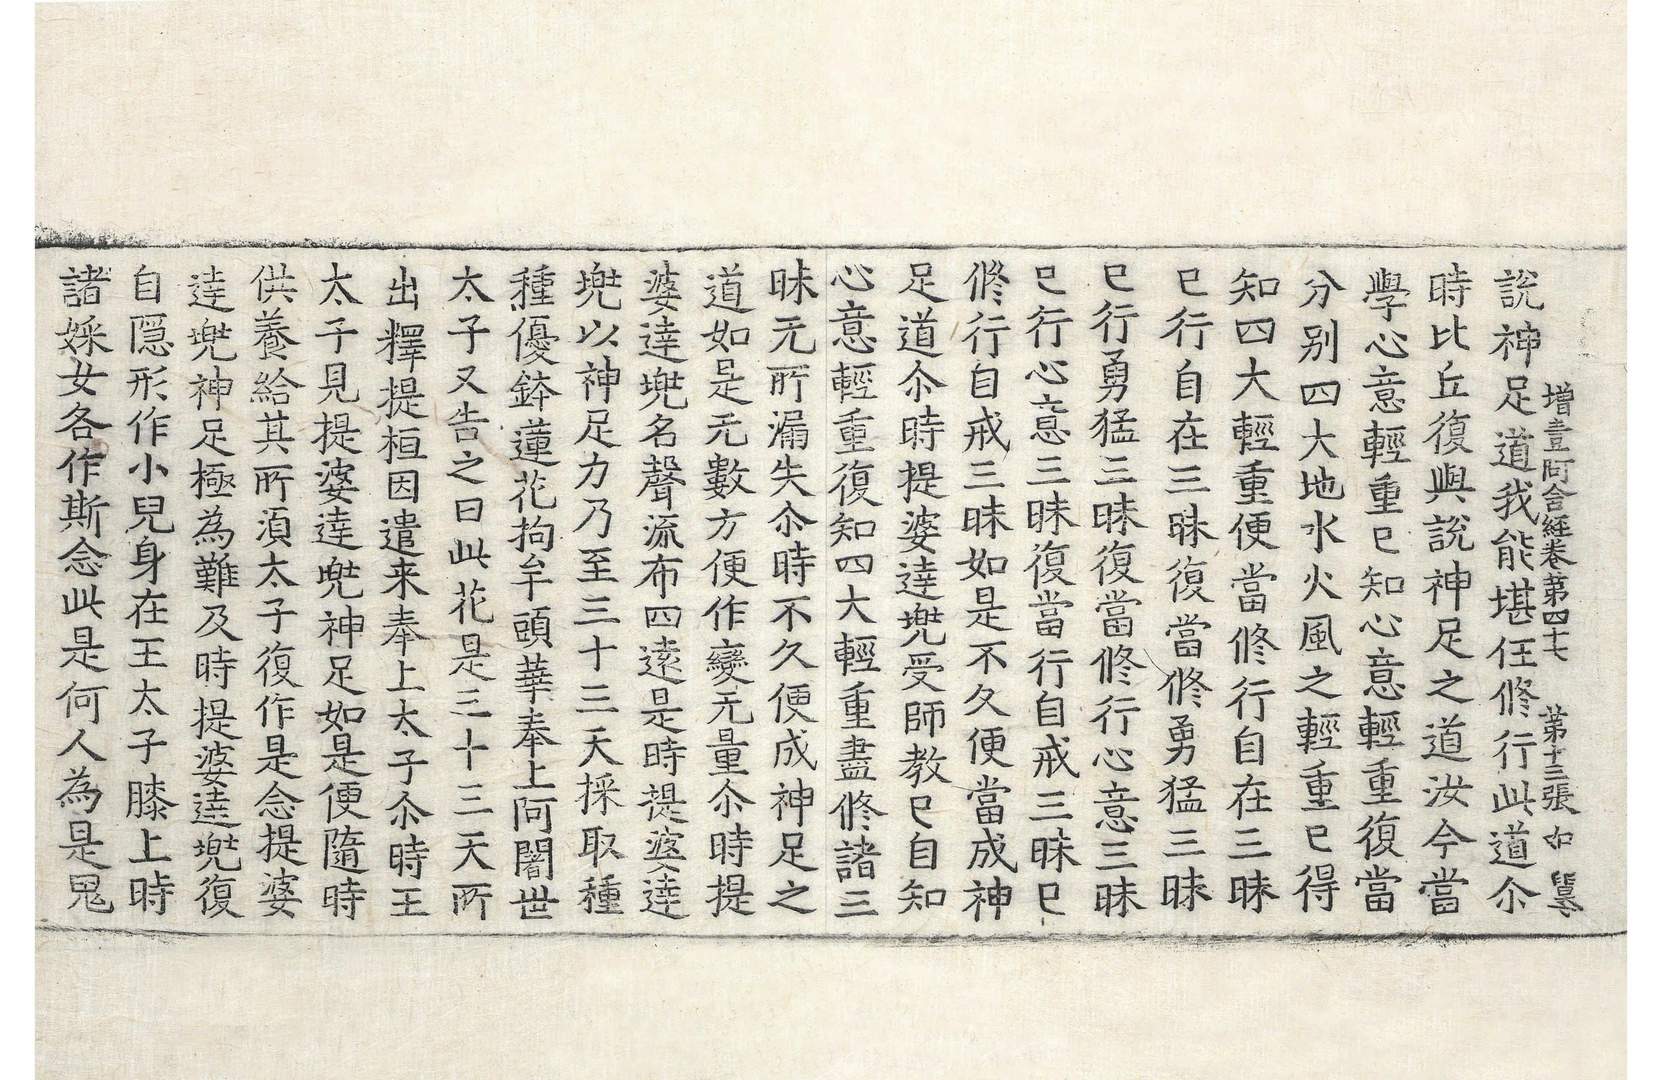 增壹阿含經卷第四七 第十三張 如
說神足道我能堪任修行此道尒
時比丘復與說神足之道汝今當
學心意輕重已知心意輕重復當
分别四大地水火風之輕重已得
知四大輕重便當修行自在三昧
已行自在三昧復當修勇猛三昧
已行勇猛三昧復當修行心意三昧
已行心意三昧復當行自戒三昧已
修行自戒三昧如是不久便當成神
足道尒時提婆達兜受師教已自知
心意輕重復知四大輕重盡修諸三
昧无所漏失尒時不久便成神足之
道如是无數方便作變无量尒時提
婆達兜名聲流布四遠是時提婆達
兜以神足力乃至三十三天採取種
種優鉢蓮花拘牟頭華奉上阿闍世
太子又告之曰此花是三十三天所
出釋提桓因遣来奉上太子尒時王
太子見提婆達兜神足如是便隨時
供養給其所湏太子復作是念提婆
達兜神足極為難及時提婆達兜復
自隱形作小兒身在王太子膝上時
諸婇女各作斯念此是何人為是鬼